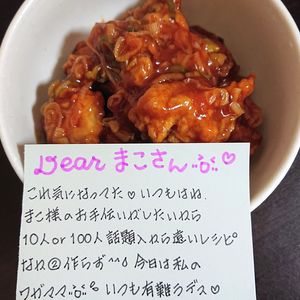 Dear まこさん ♡
これ気になってた♡いつもはね、
まこ様のお手伝いがしたいから
10人or100人話題入り遠いレシピ
なね②作らず^^ 今日は私の
ワガママ いつも有難うデス♡